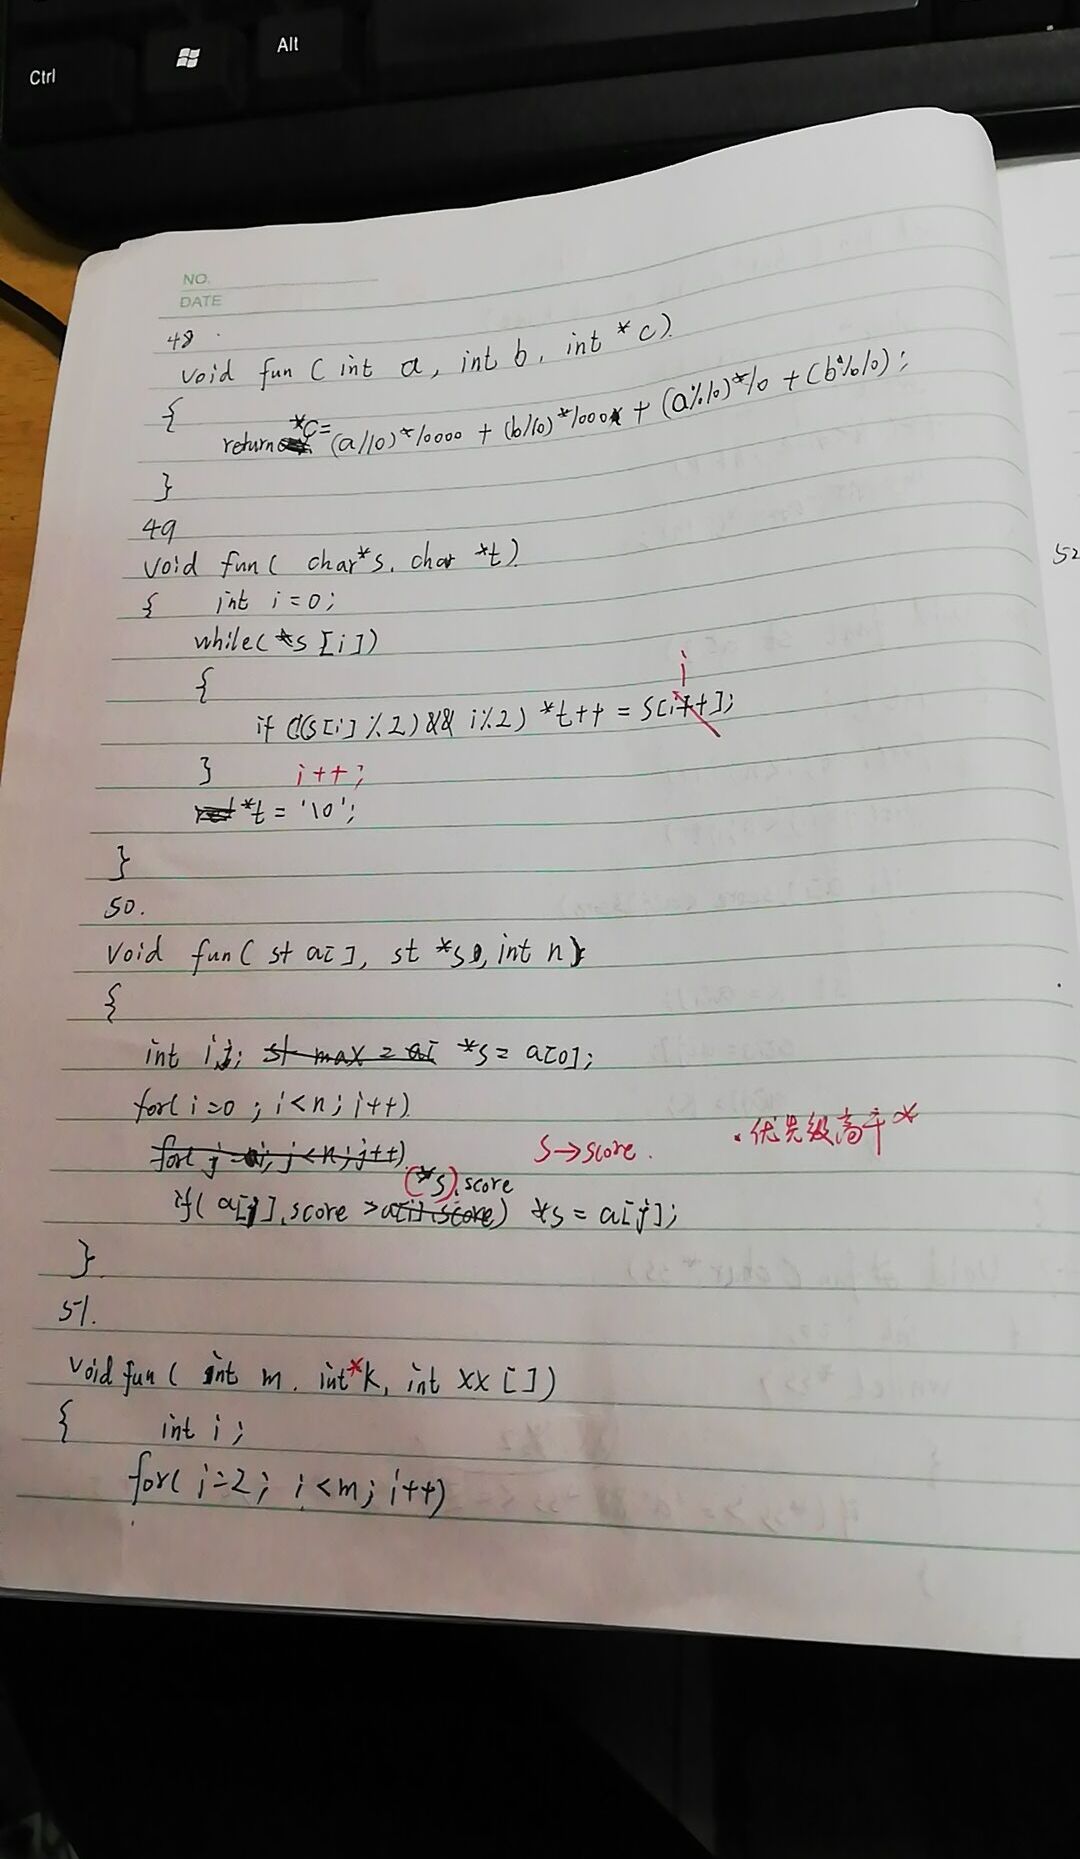 Ctrl
Alt
NO.
DATE
48.
void fun ( int a, int b, int *c)
{
*c=
return (a/10)*10000 + (b/10)*1000 + (a%10)*10 + (b%10);
}
49
void fun( char*s, char *t)
{ int i=0;
while(*s[i])
{
i
if ((s[i]%2)&& i%2) *t++ = s[i++];
} i++;
*t = '\0';
}
50.
void fun( st a[], st *s, int n)
{
int i,j; st max = a[ *s= a[0];
for( i=0 ; i<n; i++)
for( j=i; j<n; j++) s→score. .优先级高于*
(*s).score
if( a[j].score >a[i].score) *s = a[j];
}
51.
void fun( int m, int*k, int xx[])
{ int i;
for( i=2; i<m; i++)
52